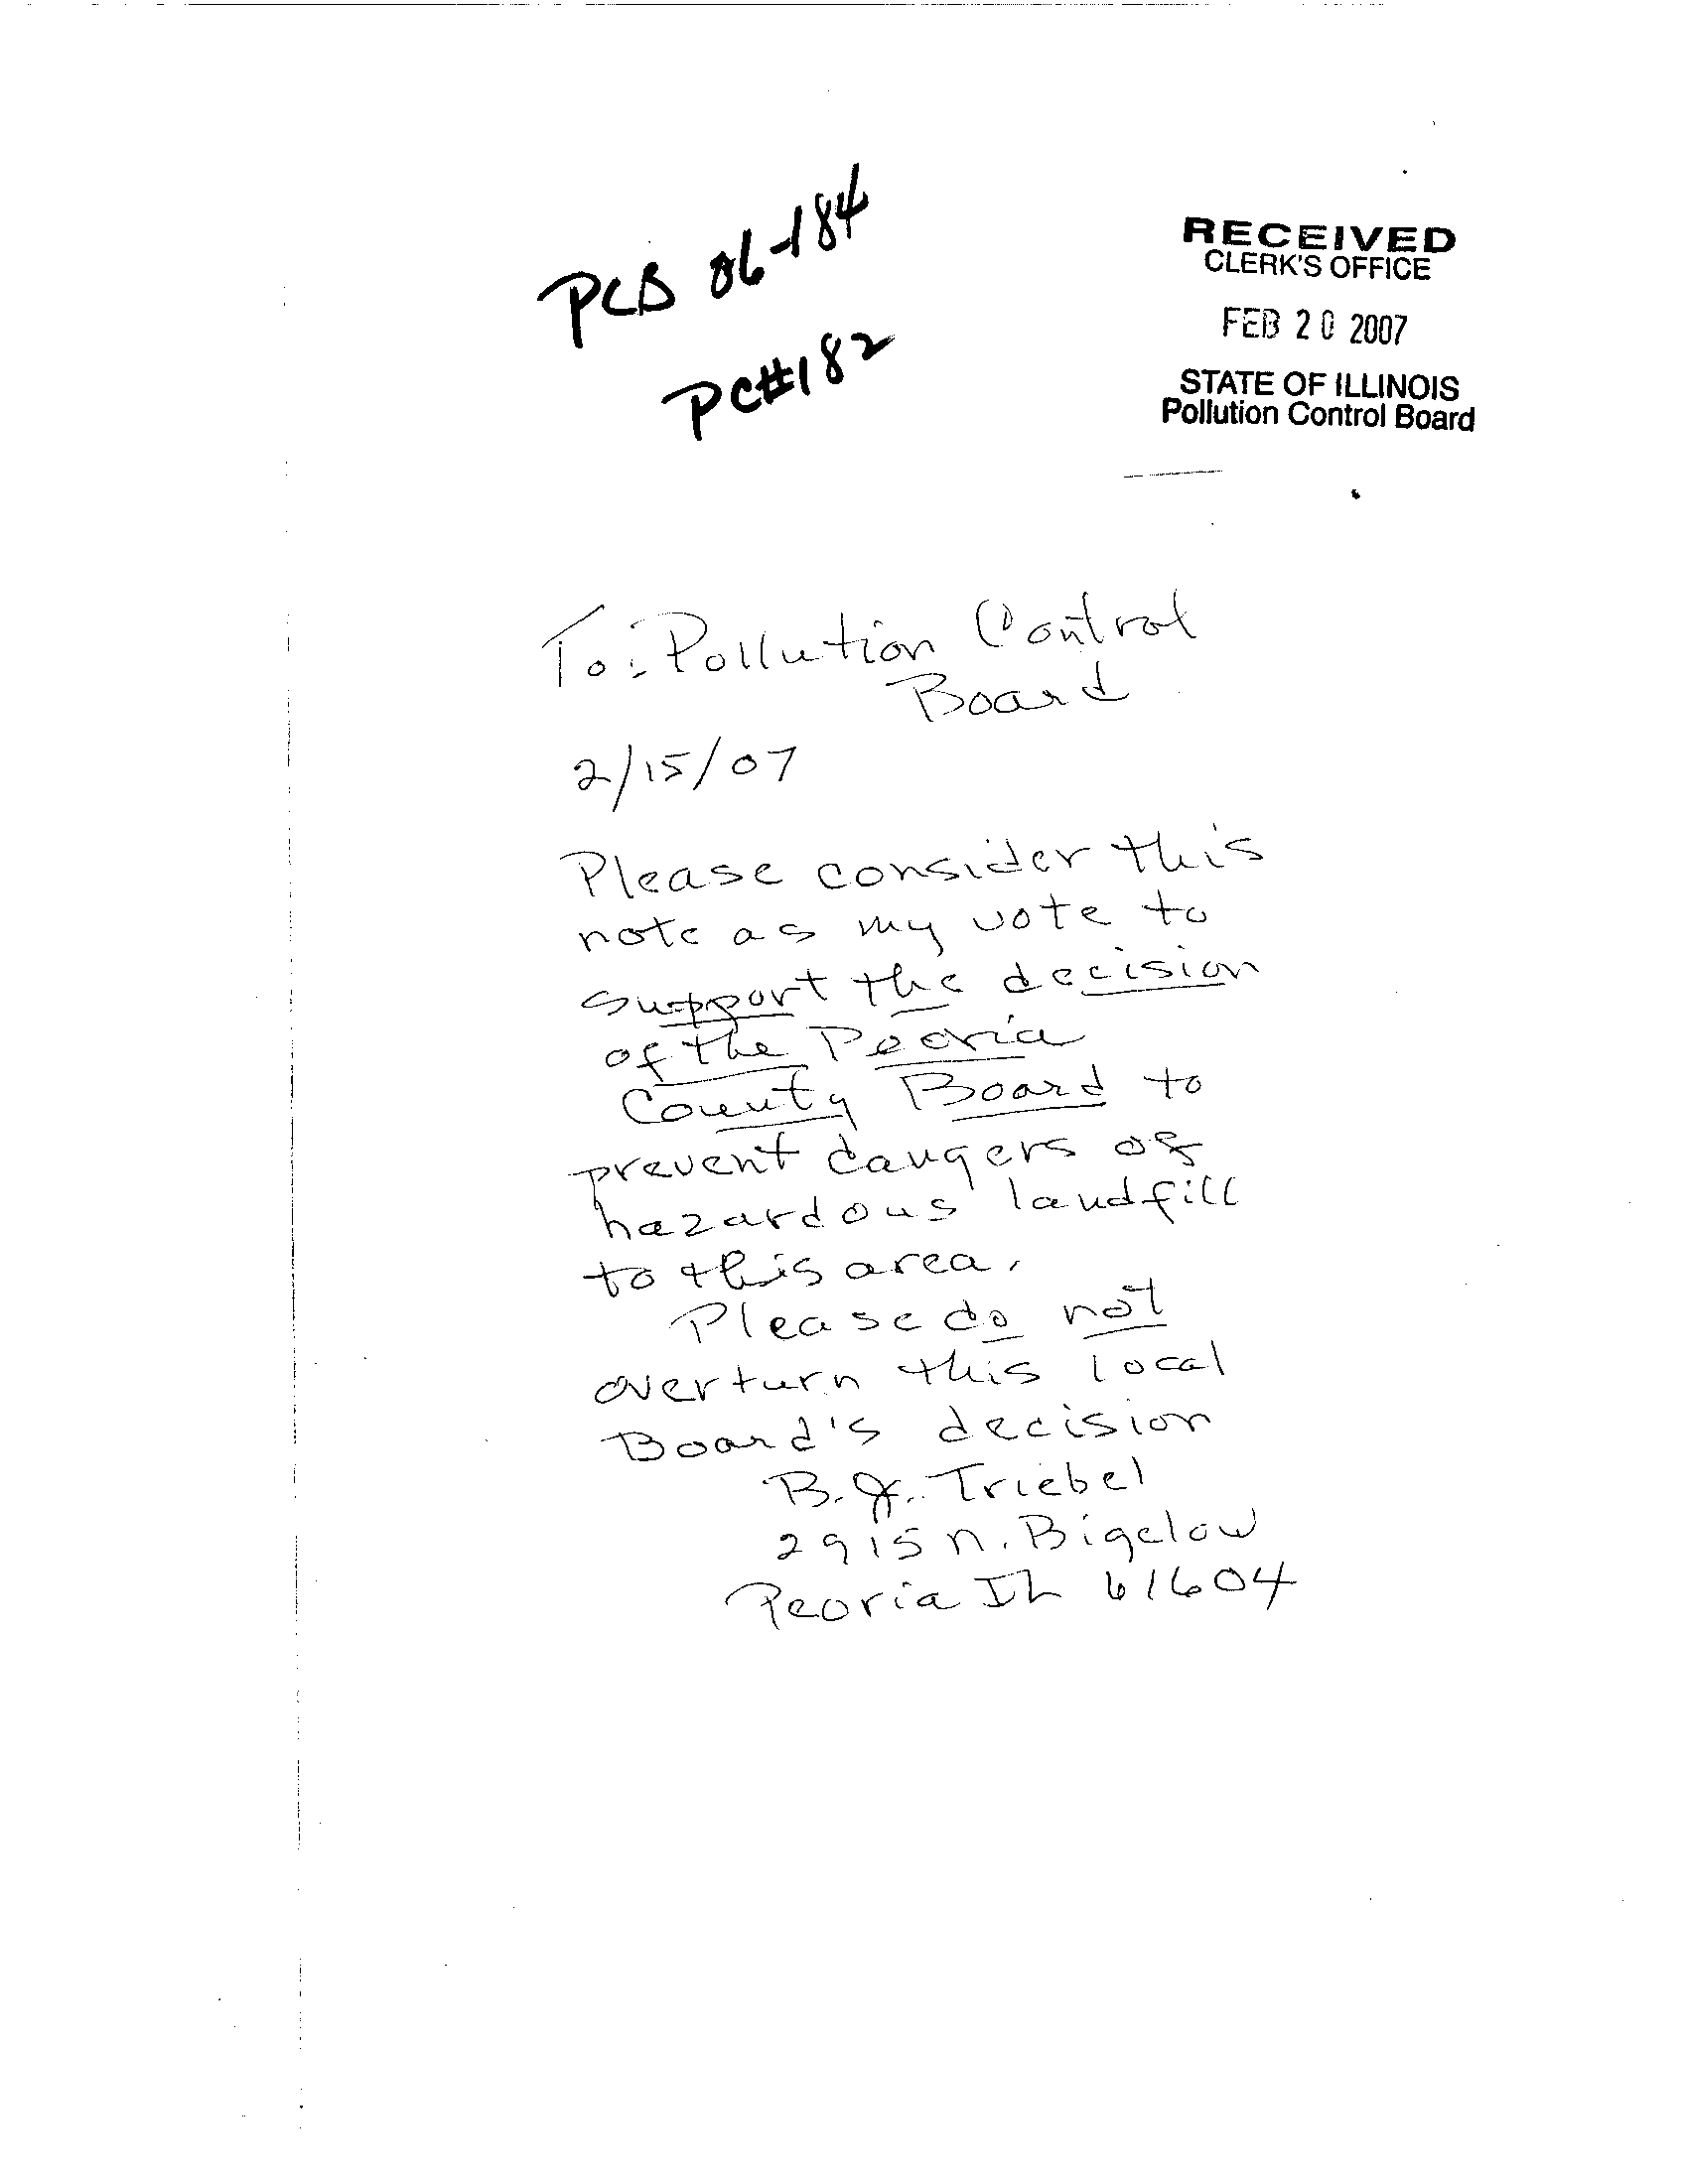 PCB 06-184
PC#182
RECEIVED
CLERK'S OFFICE
FEB 20 2007
STATE OF ILLINOIS
Pollution Control Board
To: Pollution Control
Board
2/15/07
Please consider this
note as my vote to
support the decision
of the Peoria
County Board to
prevent dangers of
hazardous landfill
to this area.
Please do not
overturn this local
Board's decision
B.J. Triebel
2915 N. Bigelow
Peoria IL 61604